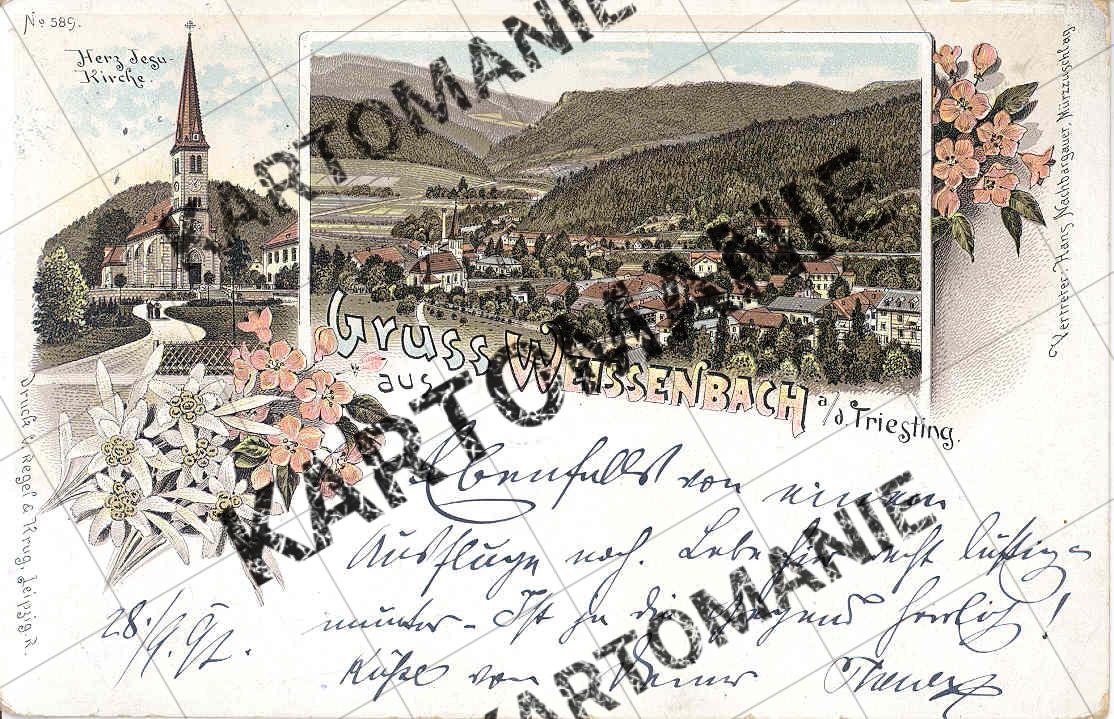 No 589.
Herz Jesu-
Kirche.
Gruss
aus Weissenbach a/d. Triesting.
Vertreter: Hans Nachbargauer, Mürzzuschlag
Druck v. Regel & Krug, Leipzig-R.
KARTOMANIE
KARTOMANIE
KARTOMANIE
KARTOMANIE
KARTOMANIE
Ebenfalls von einem
Ausfluge noch. Lebe hier recht lustig u
munter - Ist ja die Gegend herrlich!
28./9. 97.
Küsse von Deiner